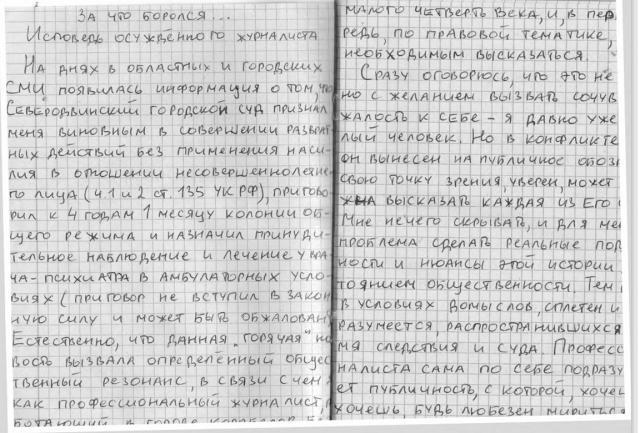 За что боролся...
Исповедь осуждённого журналиста
На днях в областных и городских
СМИ появилась информация о том, что
Северодвинский городской суд признал
меня виновным в совершении разврат-
ных действий без применения наси-
лия в отношении несовершеннолетне-
го лица (ч.1 и 2 ст. 135 УК РФ), пригово-
рил к 4 годам 1 месяцу колонии об-
щего режима и назначил принуди-
тельное наблюдение и лечение у вра-
ча-психиатра в амбулаторных усло-
виях (приговор не вступил в закон-
ную силу и может быть обжалован)
Естественно, что данная "горячая" но-
вость вызвала определённый общес
твенный резонанс, в связи с чем
как профессиональный журналист,
ботающий в городе корабелов
малого четверть века, и, в пер
редь, по правовой тематике,
необходимым высказаться.
Сразу оговорюсь, что это не
но с желанием вызвать сочув
жалость к себе - я давно уже
лый человек. Но в конфликте
он вынесен на публичное обоз
свою точку зрения, уверен, может
высказать каждая из его
Мне нечего скрывать, и для ме
проблема сделать реальные под
ности и нюансы этой истории
тоянием общественности. Тем
в условиях домыслов, сплетен и
разумеется, распространившихся
мя следствия и суда. Професс
налиста сама по себе подразу
ет публичность, с которой, хочеш
хочешь, будь любезен мириться